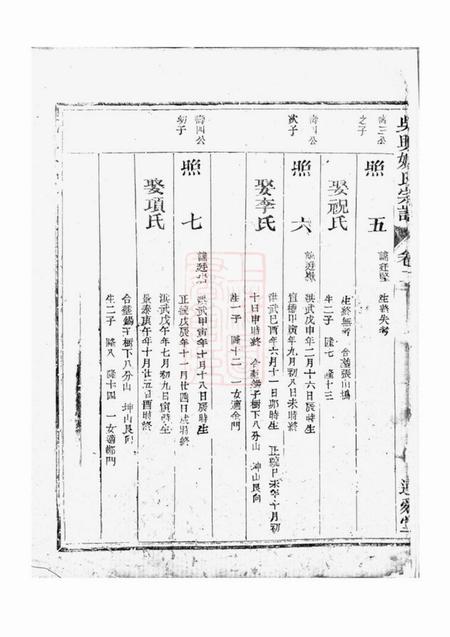 吳興姚氏宗譜
卷二
壽三公
之子
照五
諱廷堅
生終失考
娶祝氏
生終無考 合葬張山塢
生二子 隆七 隆十三
壽四公
次子
照六
洪武戊申年二月十六日辰時生
宣德甲寅年九月初八日未時終
娶李氏
洪武己酉年六月十一日卯時生 正統己未年十月初
十日申時終 合葬錫子樹下八分山 坤山艮向
生二子 隆十二 一女適金門
壽四公
幼子
照七
洪武甲寅年十月十八日辰時生
正統戊辰年十一月廿四日戌時終
娶項氏
洪武戊午年七月初九日寅時生
景泰庚午年十月廿五日酉時終
合葬錫子樹下八分山 坤山艮向
生二子 隆八 隆十四 一女適鄭門